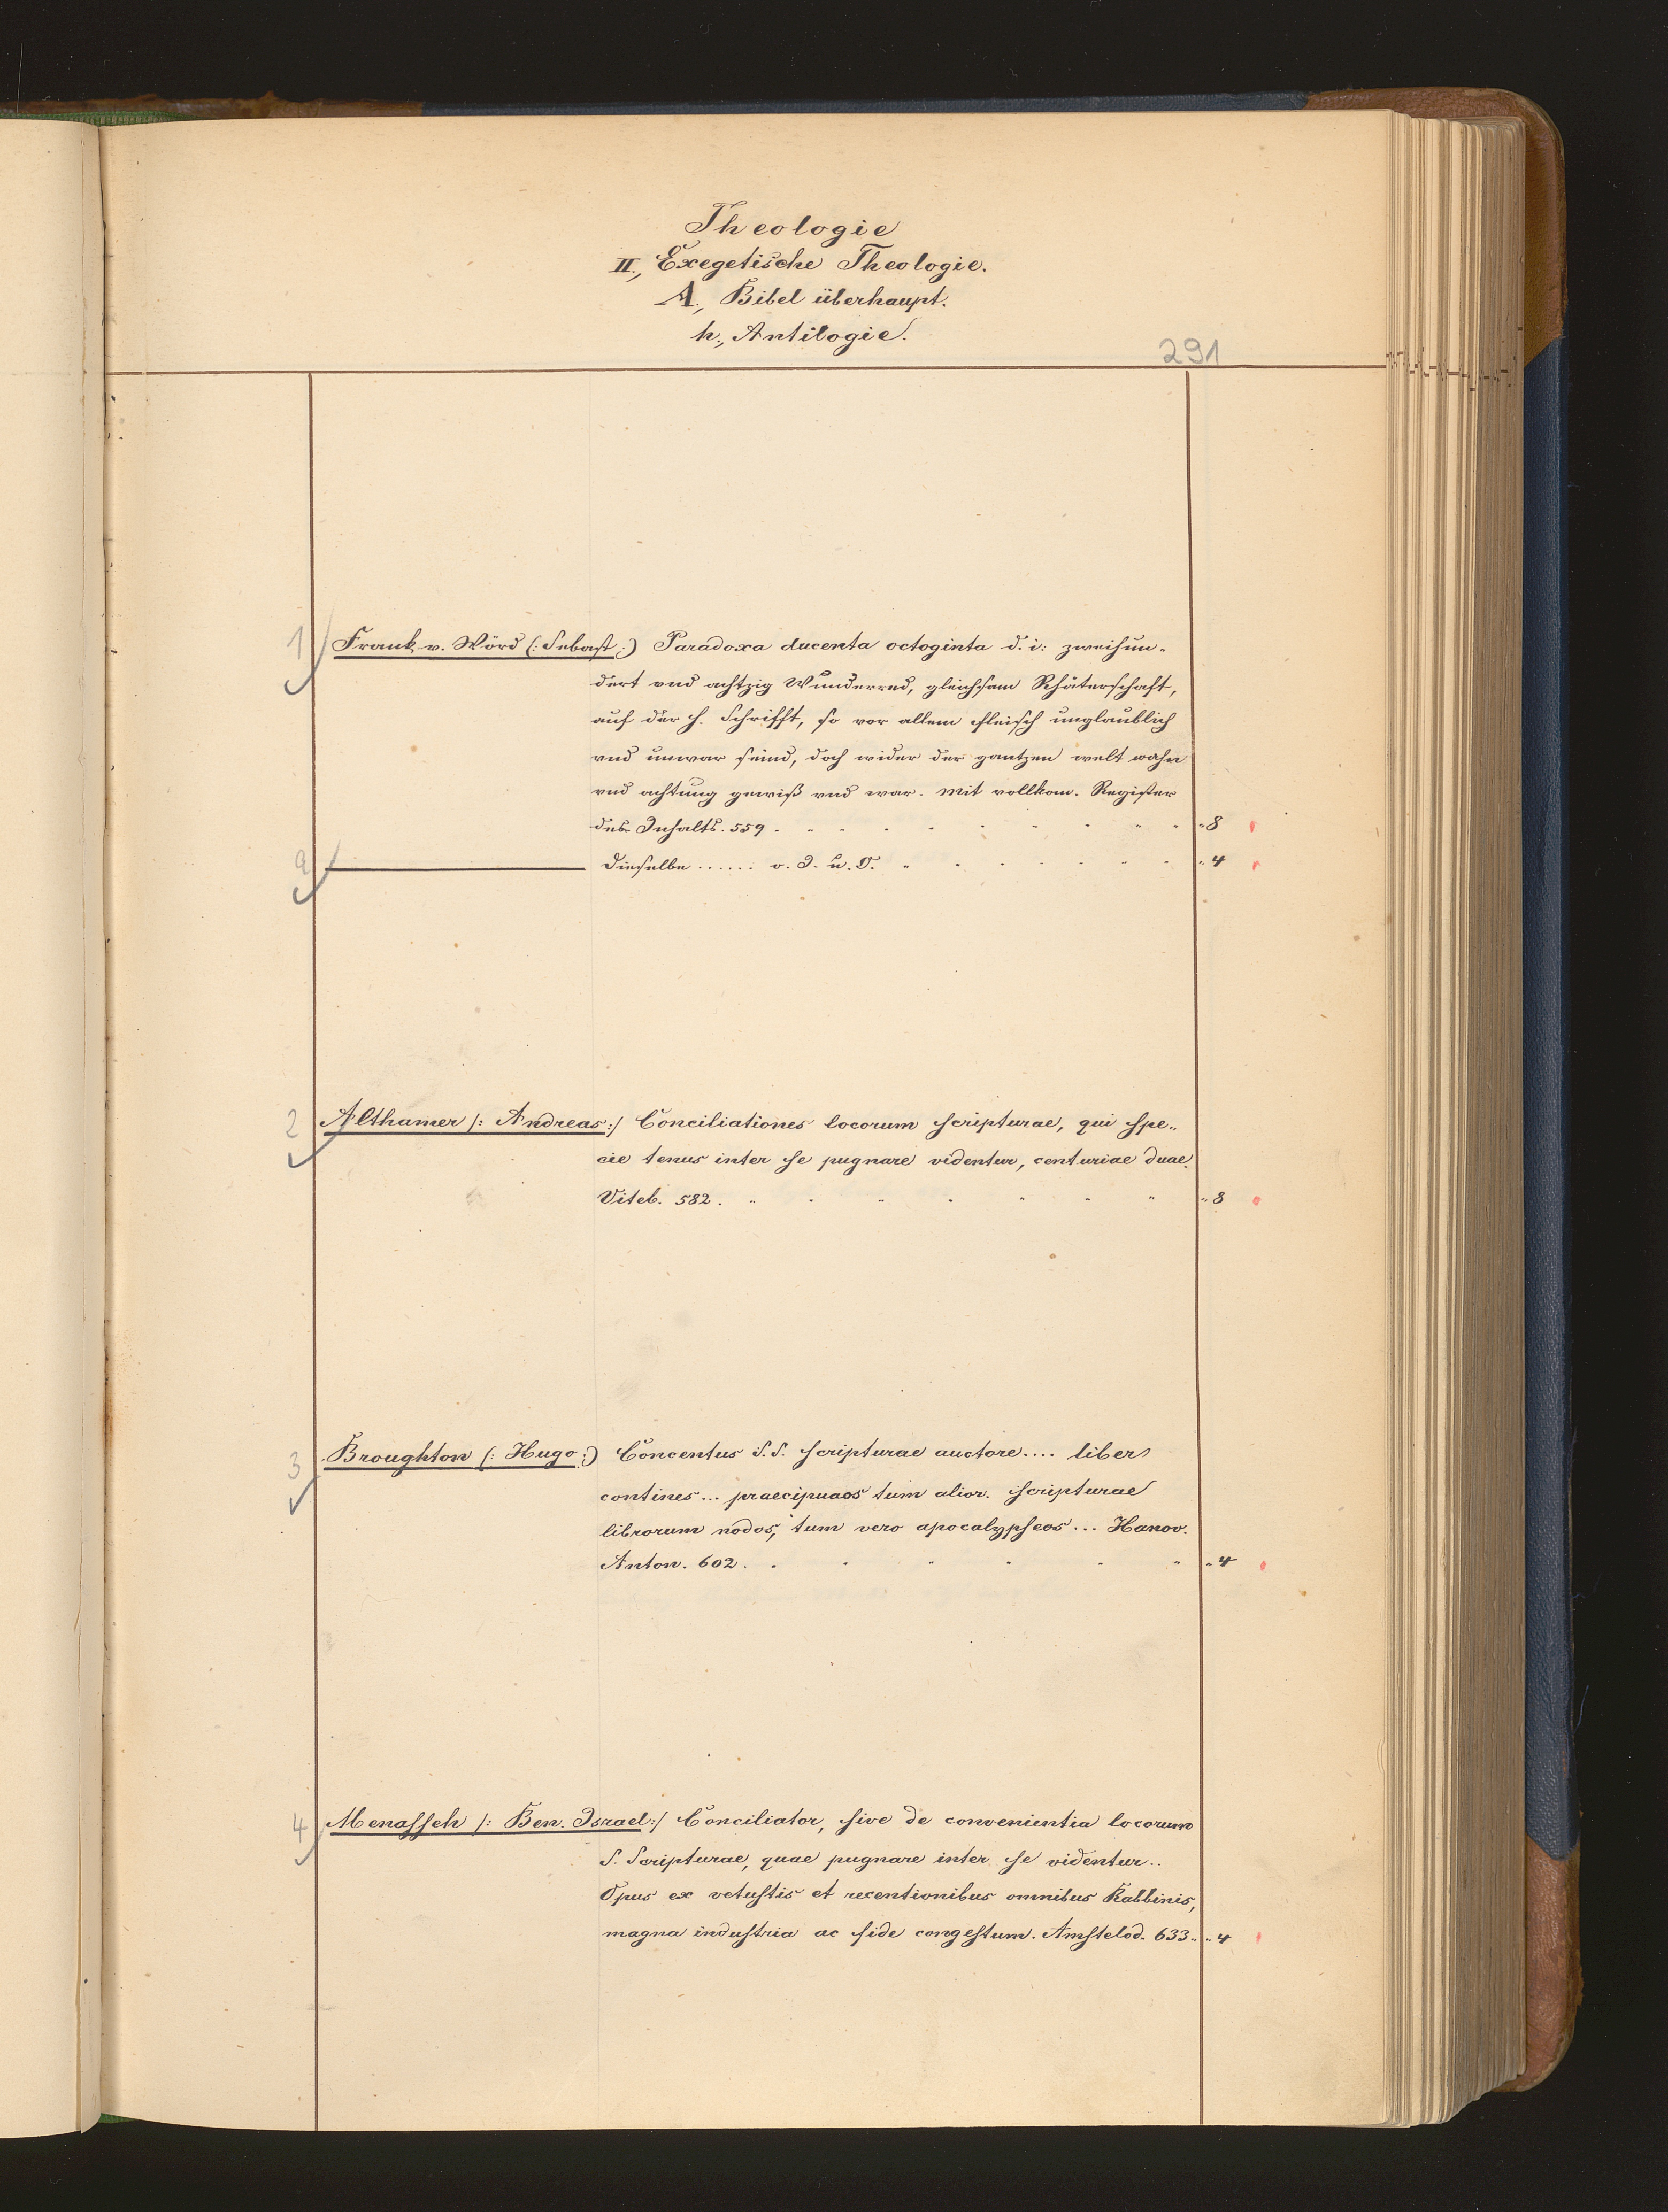 Theologie
II., Exegetische Theologie.
A., Bibel überhaupt.
h., Antilogie.
291
1 Frank v. Wörd (: Sebast :) Paradoxa ducenta octoginta d. i: zweihun-
dert vnd achtzig Wunderred, gleichsam Rhäterschaft,
auß der h. Schrifft, so vor allem fleisch unglaublich
vnd unwar seind, doch wider der gantzen welt wahn
vnd achtung gewiß vnd war. Mit vollkom. Register
des Inhalts. 559. „ 8
a Dieselbe ...... o. J. u. O. „ 4
2 Althamer /: Andreas :/ Conciliationes locorum scripturae, qui spe-
cie tenus inter se pugnare videntur, centuriae duae.
Viteb. 582. „ 8
3 Broughton (: Hugo :) Concentus S.S. scripturae auctore .... liber
contines ... praecipuaos tum alior. scripturae
librorum nodos, tum vero apocalypseos ... Hanov.
Anton. 602. „ 4
4 Menasseh /: Ben. Israel :/ Conciliator, sive de convenientia locorum
S. Scripturae, quae pugnare inter se videntur ..
Opus ex vetustis et recentionibus omnibus Rabbinis,
magna industria ac fide congestum. Amstelod. 633. „ 4